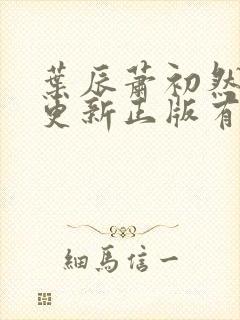 葉辰蕭初然
更新正版有
細馬信一